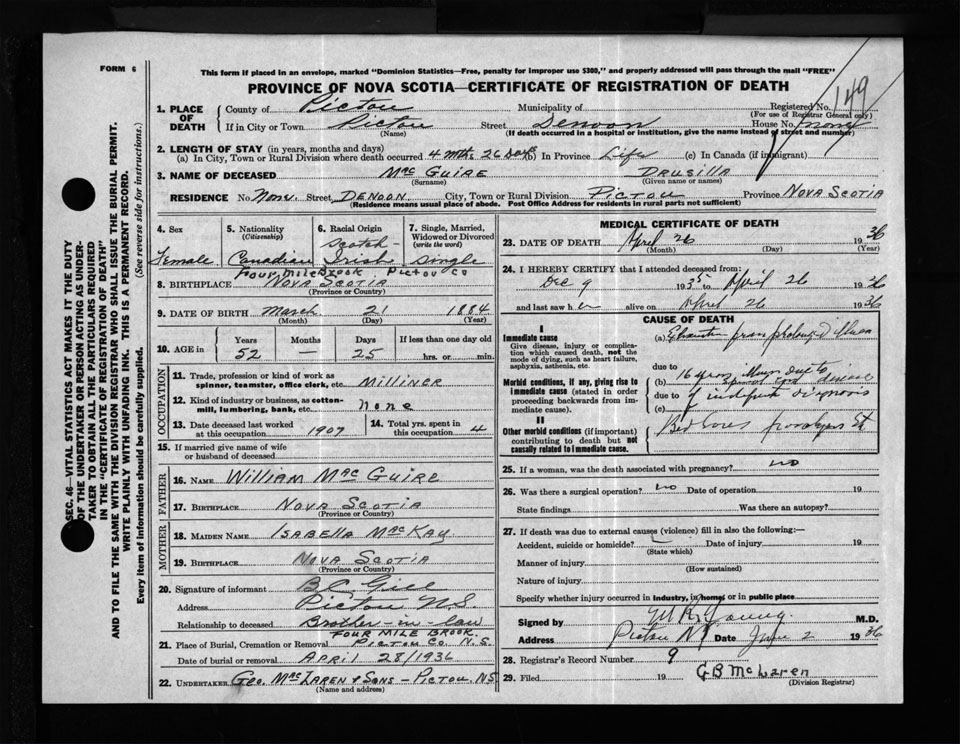 FORM 6
This form if placed in an envelope, marked "Dominion Statistics—Free, penalty for improper use $300," and properly addressed will pass through the mail "FREE"
PROVINCE OF NOVA SCOTIA—CERTIFICATE OF REGISTRATION OF DEATH
149
1. PLACE OF DEATH County of Pictou Municipality of Registered No.
(For use of Registrar General only)
If in City or Town Pictou Street Denoon House No. None
(Name) (If death occurred in a hospital or institution, give the name instead of street and number)
2. LENGTH OF STAY (in years, months and days)
(a) In City, Town or Rural Division where death occurred 4 mths 26 Days (b) In Province Life (c) In Canada (if immigrant)
3. NAME OF DECEASED MacGuire Drusilla
(Surname) (Given name or names)
RESIDENCE No. None Street, DENOON City, Town or Rural Division PICTOU Province NOVA SCOTIA
(Residence means usual place of abode. Post Office Address for residents in rural parts not sufficient)
4. Sex Female
5. Nationality (Citizenship) Canadian
6. Racial Origin Scotch-Irish
7. Single, Married, Widowed or Divorced (write the word) Single
Four Mile Brook Pictou Co
8. BIRTHPLACE NOVA SCOTIA
(Province or Country)
9. DATE OF BIRTH March 21 1884
(Month) (Day) (Year)
10. AGE in Years 52 Months — Days 25 If less than one day old hrs. or min.
OCCUPATION
11. Trade, profession or kind of work as spinner, teamster, office clerk, etc. Milliner
12. Kind of industry or business, as cotton-mill, lumbering, bank, etc. None
13. Date deceased last worked at this occupation 1907
14. Total yrs. spent in this occupation 4
15. If married give name of wife or husband of deceased
FATHER
16. NAME William MacGuire
17. BIRTHPLACE NOVA SCOTIA
(Province or Country)
MOTHER
18. MAIDEN NAME Isabella MacKay
19. BIRTHPLACE Nova Scotia
(Province or Country)
20. Signature of informant B.C. Gill
Address Pictou N.S.
Relationship to deceased Brother-in-law
FOUR MILE BROOK
21. Place of Burial, Cremation or Removal PICTOU CO. N.S.
Date of burial or removal APRIL 28/1936
22. UNDERTAKER Geo. MacLaren & Sons - Pictou, N.S.
(Name and address)
MEDICAL CERTIFICATE OF DEATH
23. DATE OF DEATH April 26 1936
(Month) (Day)
24. I HEREBY CERTIFY that I attended deceased from:
Dec 9 1935 to April 26 1936
and last saw her alive on April 26 1936
CAUSE OF DEATH
I
Immediate cause
Give disease, injury or complication which caused death, not the mode of dying, such as heart failure, asphyxia, asthenia, etc.
(a) Exhaustion from prolonged illness
Morbid conditions, if any, giving rise to immediate cause (stated in order proceeding backwards from immediate cause).
due to
(b) 16 years illness due to spinal cord disease
due to
(c) of indefinite diagnosis
II
Other morbid conditions (if important) contributing to death but not causally related to immediate cause.
Bed Sores paralysis
25. If a woman, was the death associated with pregnancy? no
26. Was there a surgical operation? no Date of operation 19
State findings Was there an autopsy?
27. If death was due to external causes (violence) fill in also the following:—
Accident, suicide or homicide? Date of injury 19
(State which)
Manner of injury
(How sustained)
Nature of injury
Specify whether injury occurred in industry, in home, or in public place
Signed by Young M.D.
Address Pictou NS Date June 2 1936
28. Registrar's Record Number 9
29. Filed 19 GB McLaren
(Division Registrar)
SEC. 46—VITAL STATISTICS ACT MAKES IT THE DUTY
OF THE UNDERTAKER OR PERSON ACTING AS UNDERTAKER
TO OBTAIN ALL THE PARTICULARS REQUIRED
IN THE "CERTIFICATE OF REGISTRATION OF DEATH"
AND TO FILE THE SAME WITH THE DIVISION REGISTRAR WHO SHALL ISSUE THE BURIAL PERMIT.
WRITE PLAINLY WITH UNFADING INK. THIS IS A PERMANENT RECORD.
Every item of information should be carefully supplied. (See reverse side for instructions.)